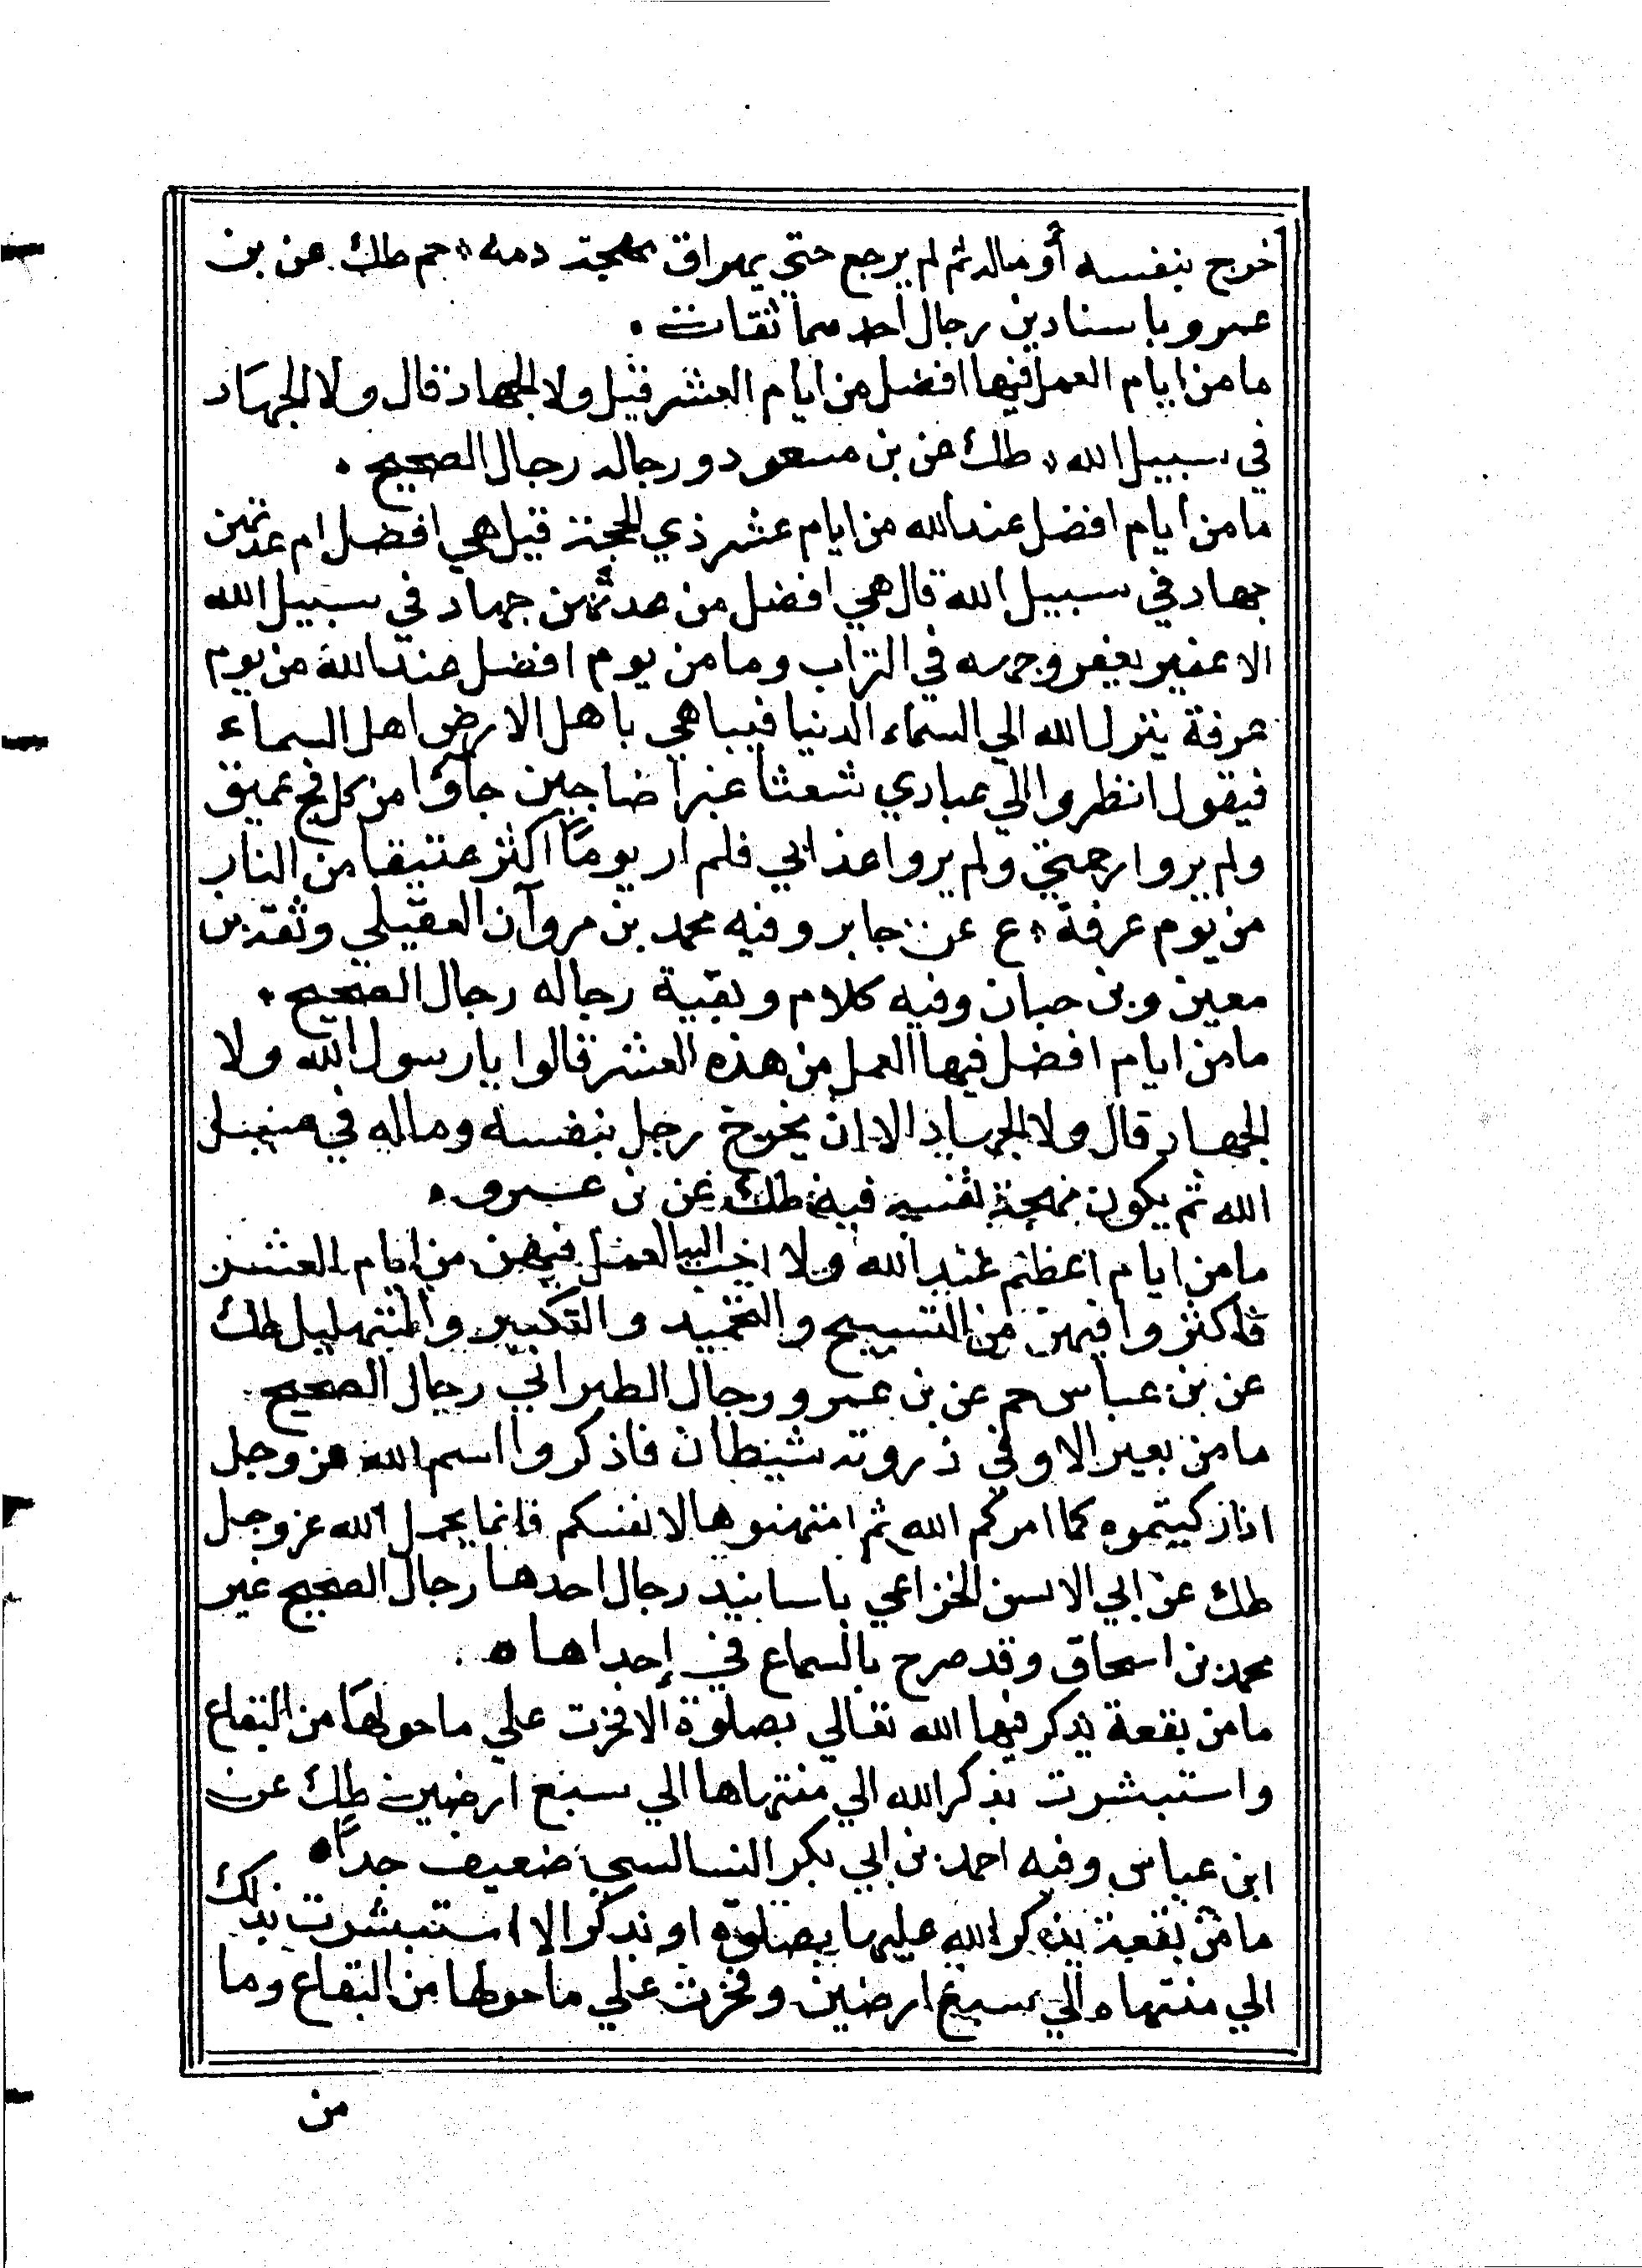 خرج بنفسه أو ماله ثم لم يرجع حتي يهراق مهجة دمه ه حم طك عن بن
عمرو باسنادين رجال احدهما ثقات ه
ما من ايام العمل فيها افضل من ايام العشر قيل ولا الجهاد قال ولا الجهاد
في سبيل الله ه طك عن بن مسعود ورجاله رجال الصحيح ه
ما من أيام افضل عند الله من ايام عشر ذي الحجة قيل هي افضل ام عدتهن
جهاد في سبيل الله قال هي افضل من عدتهن جهاد في سبيل الله
الا عفير يعفر وجهه في التراب وما من يوم افضل عند الله من يوم
عرفة ينزل الله الي السماء الدنيا فيباهي باهل الارض اهل السماء
فيقول انظروا الي عبادي شعثا غبرا ضاجين جاؤا من كل فج عميق
ولم يروا رحمتي ولم يروا عذابي فلم ار يومًا اكثر عتيقا من النار
من يوم عرفة ه ع عن جابر وفيه محمد بن مروان العقيلي وثقه بن
معين وبن حبان وفيه كلام وبقية رجاله رجال الصحيح ه
ما من ايام افضل فيها العمل من هذه العشر قالوا يا رسول الله ولا
الجهاد قال ولا الجهاد الا ان يخرج رجل بنفسه وماله في سبيل
الله ثم يكون مهجة نفسه فيه طك عن بن عمرو ه
ما من ايام اعظم عند الله ولا احب اليه العمل فيهن من ايام العشر
فاكثروا فيهن من التسبيح والتحميد والتكبير والتهليل طك
عن بن عباس حم عن بن عمرو ورجال الطبراني رجال الصحيح
ما من بعير الا وفي ذروته شيطان فاذكروا اسم الله عز وجل
اذا ركبتموه كما امركم الله ثم امتهنوها لانفسكم فانما يحمل الله عز وجل
طك عن ابي الاسن الخزاعي باسانيد رجال احدها رجال الصحيح غير
محمد بن اسحاق وقد صرح بالسماع في إحداها ه
ما من بقعة يذكر فيها الله تعالي بصلوة الا فخرت علي ما حولها من البقاع
واستبشرت بذكر الله الي منتهاها الي سبع ارضين طك عن
ابن عباس وفيه احمد بن ابي بكر النسالسي ضعيف جداً ه
ما من بقعة يذكر الله عليها بصلوة او بذكر الا استبشرت بذلك
الي منتهاه الي سبع ارضين وفخرت علي ما حولها من البقاع وما
من